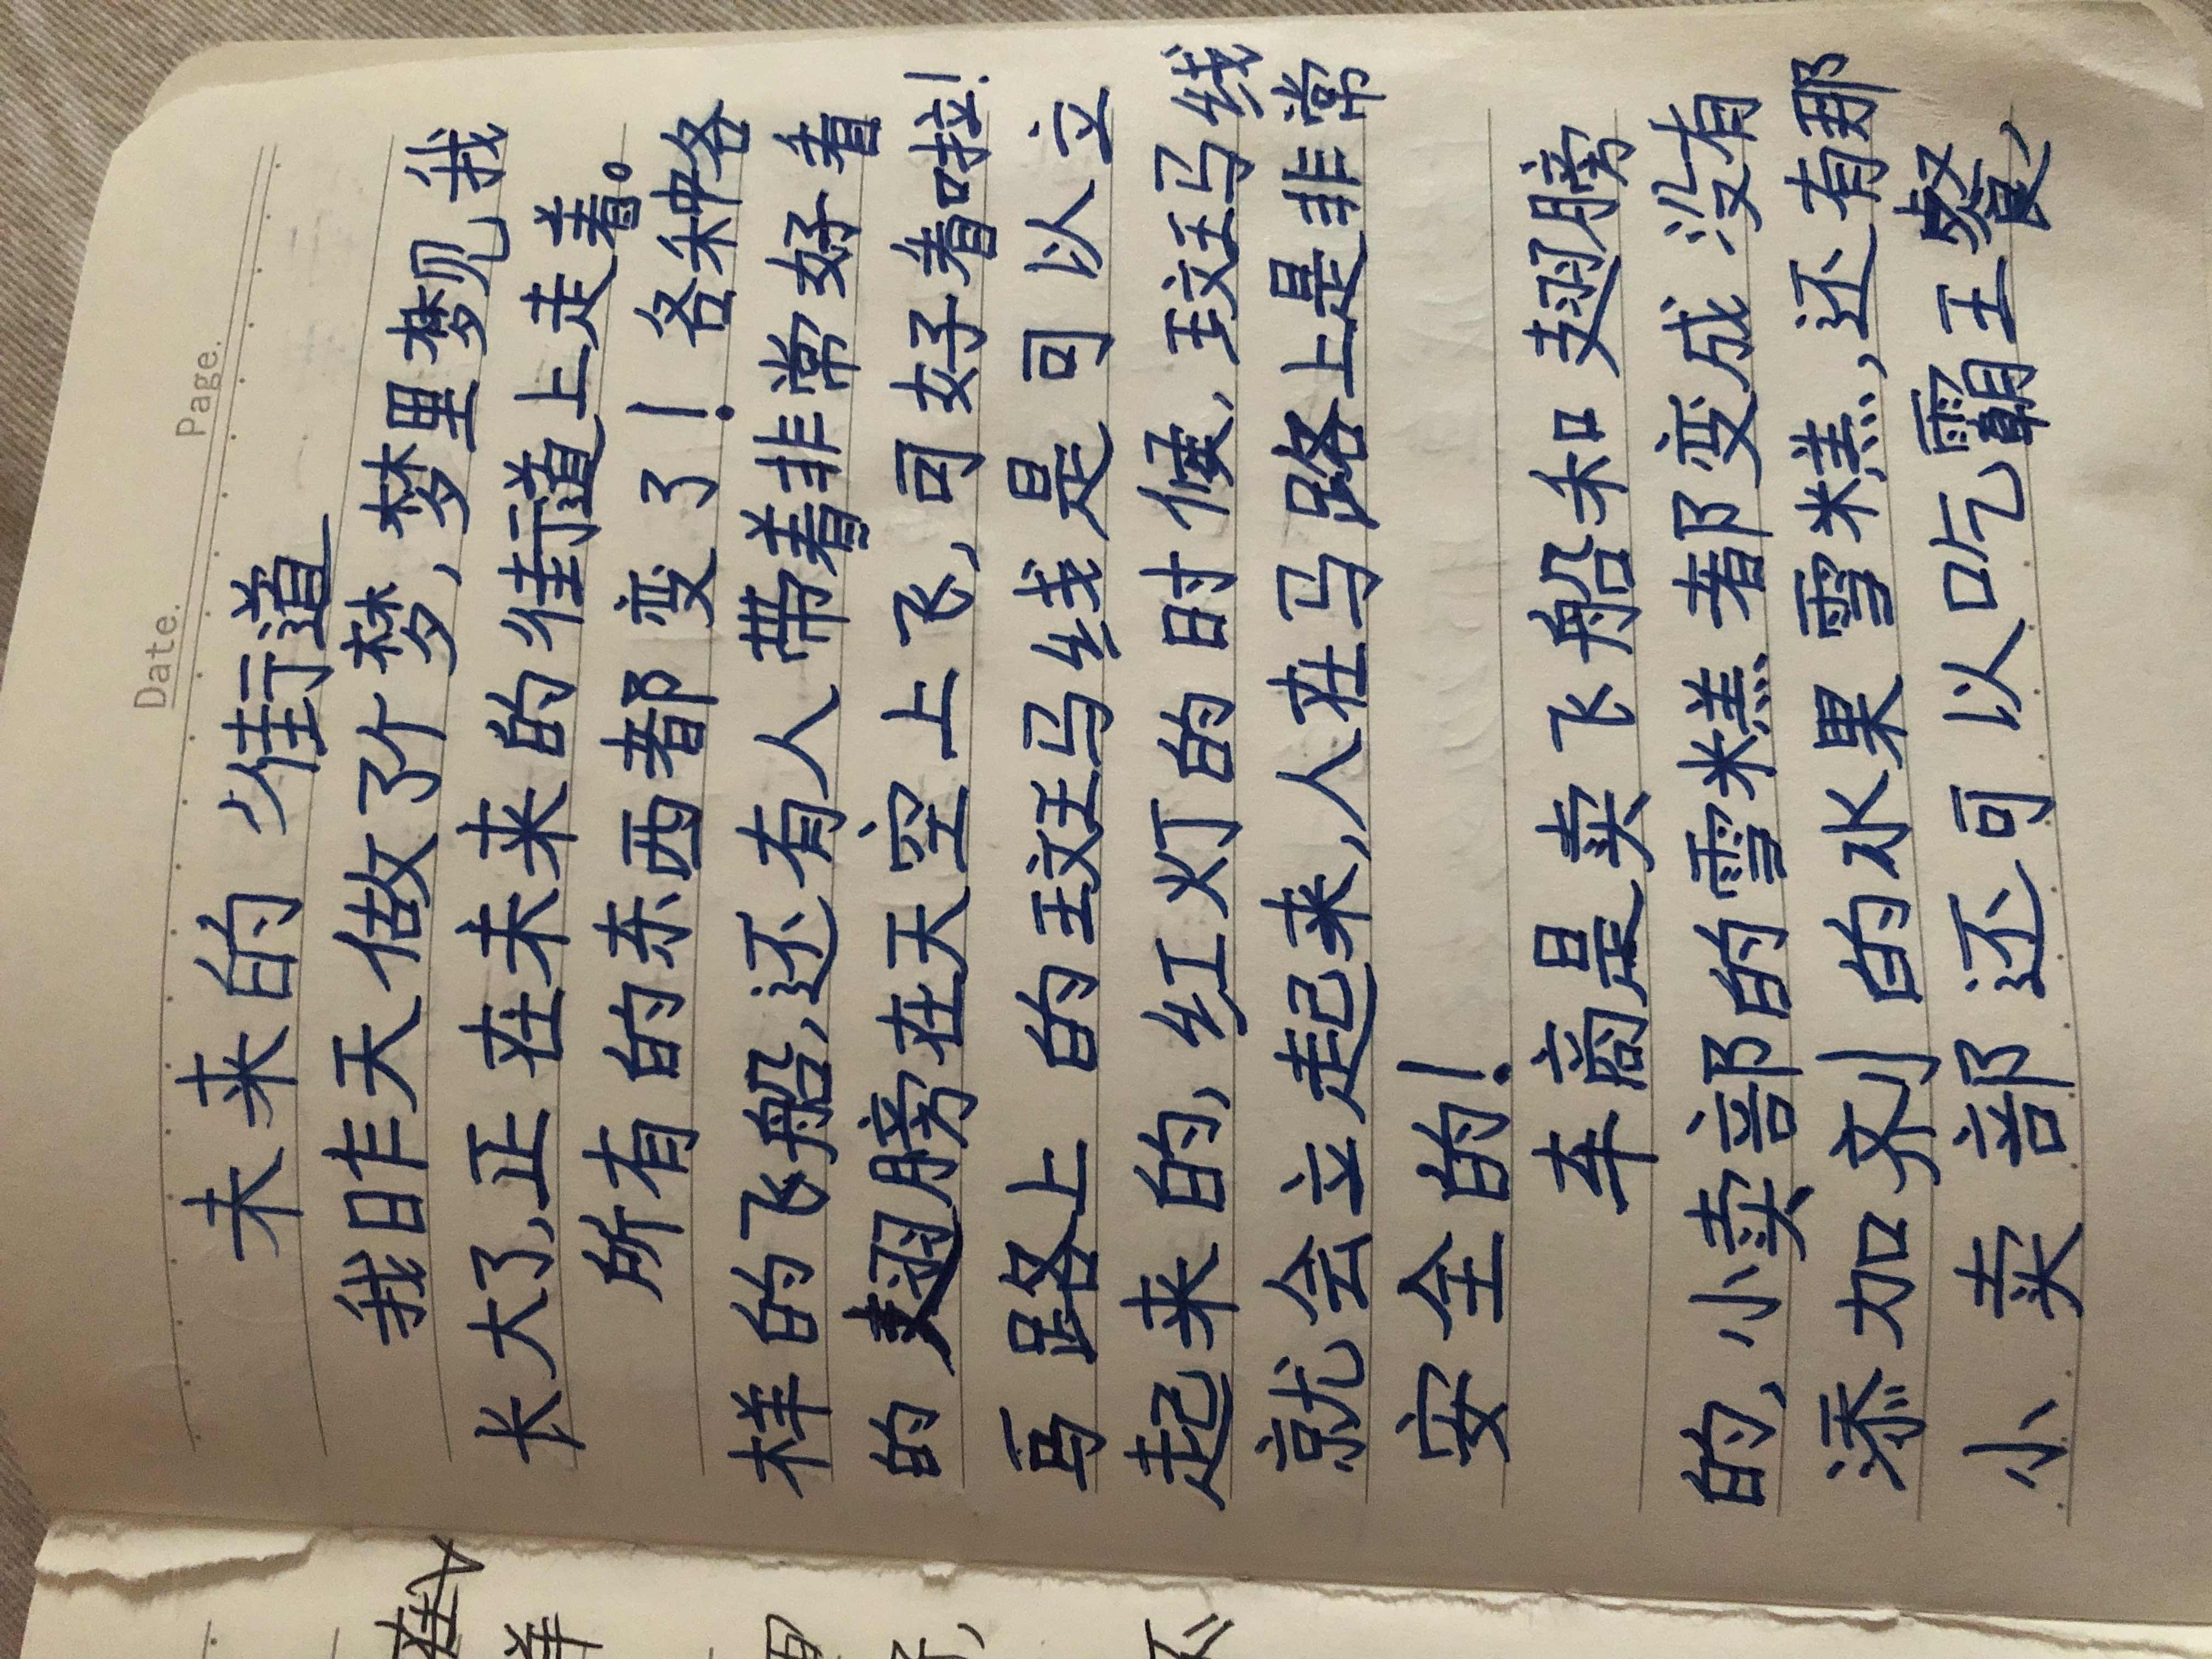 Date. Page.
未来的街道
我昨天做了个梦，梦里梦见我
长大了，正在未来的街道上走着。
所有的东西都变了！各种各
样的飞船，还有人带着非常好看
的翅膀在天空上飞，可好看啦！
马路上的斑马线是可以立
起来的，红灯的时候，斑马线
就会立起来，人在马路上是非常
安全的！
车商是卖飞船和翅膀
的，小卖部的雪糕都变成没有
添加剂的水果雪糕，还有那
小卖部还可以吃霸王餐，